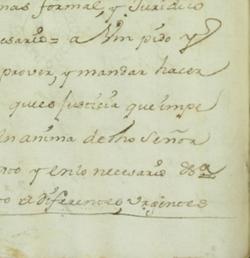 mas formal, y Juridico
cesario = a Vm pido y
proveer, y mandar hacer
que es justicia que impe
en anima de dho Señor
y en lo necesario &a
a diferentes Vrgentes